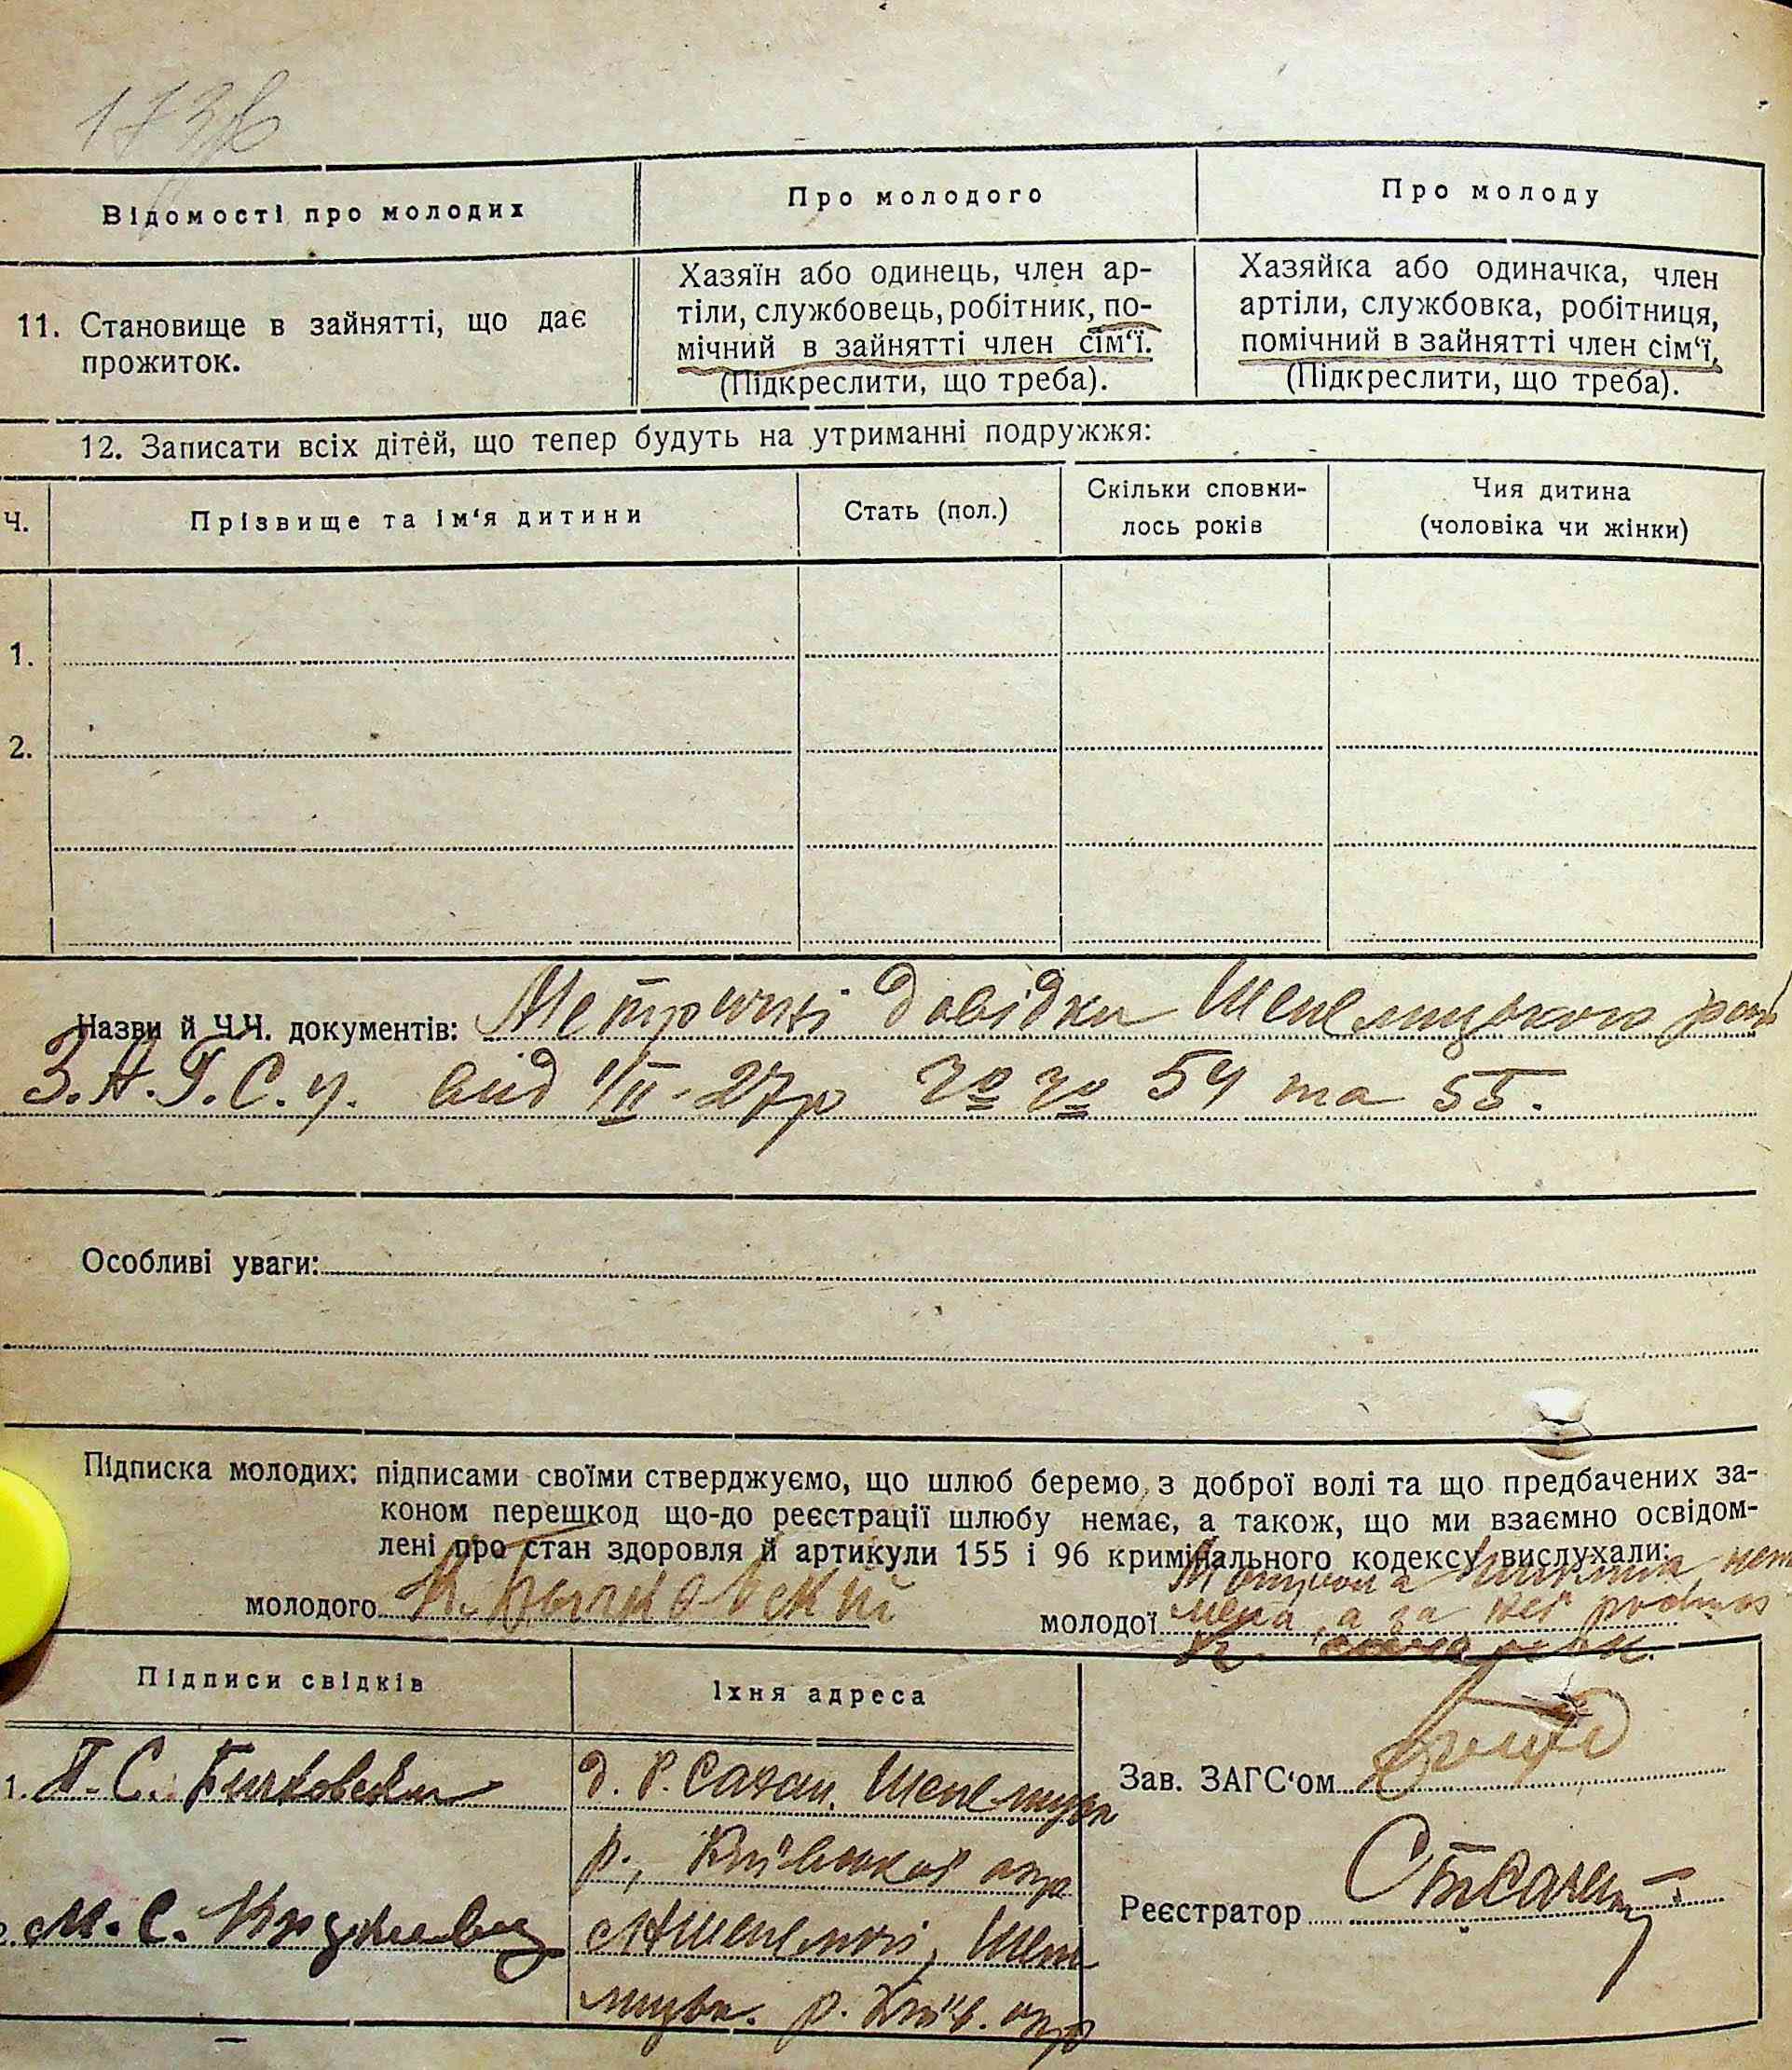 Відомості про молодих
Про молодого
Про молоду
11. Становище в зайнятті, що дає
прожиток.
Хазяїн або одинець, член ар-
тіли, службовець, робітник, по-
мічний в зайнятті член сім‘ї.
(Підкреслити, що треба).
Хазяйка або одиначка, член
артіли, службовка, робітниця,
помічний в зайнятті член сім‘ї,
(Підкреслити, що треба).
12. Записати всіх дітей, що тепер будуть на утриманні подружжя:
Ч.
Прізвище та ім‘я дитини
Стать (пол.)
Скільки сповни-
лось років
Чия дитина
(чоловіка чи жінки)
1.
2.
Назви й Ч.Ч. документів: Метричні довідки
З.А.Г.С.у. від 1/II-27р № № 54 та 55.
Особливі уваги:
Підписка молодих: підписами своїми стверджуємо, що шлюб беремо з доброї волі та що предбачених за-
коном перешкод що-до реєстрації шлюбу немає, а також, що ми взаємно освідом-
лені про стан здоровля й артикули 155 і 96 кримінального кодексу вислухали:
молодого
молодої
а за неї
Підписи свідків
Їхня адреса
1. П. С.
д. Р.
р., Київської окр
М. С.
р. Київ. окр
Зав. ЗАГС‘ом
Реєстратор